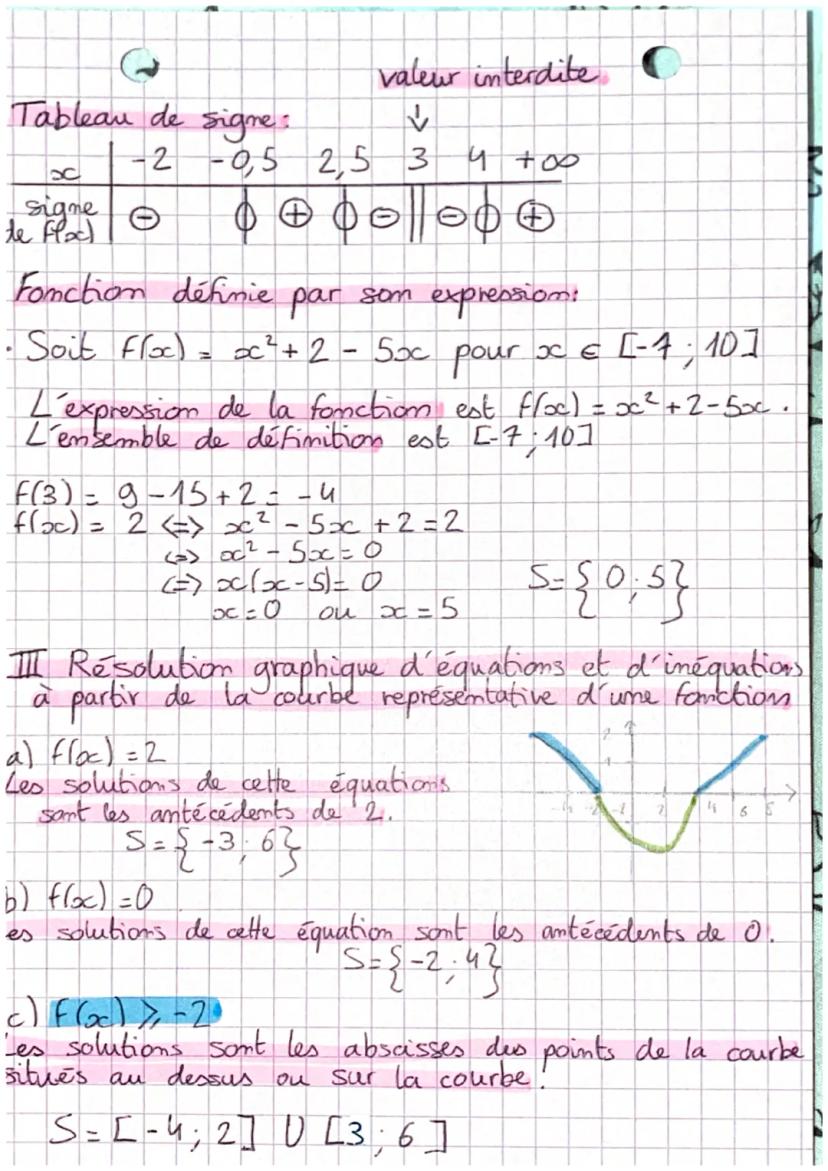 valeur interdite
Tableau de signe:
↓
x -2 -0,5 2,5 3 4 +∞
signe de f(x) ⊖ ϕ ⊕ ϕ ⊖ || ⊖ ϕ ⊕
Fonction définie par son expression:
. Soit f(x) = x² + 2 - 5x pour x ∈ [-7 ; 10]
L'expression de la fonction est f(x) = x² + 2 - 5x .
L'ensemble de définition est [-7 ; 10]
f(3) = 9 - 15 + 2 = - 4
f(x) = 2 <=> x² - 5x + 2 = 2
<=> x² - 5x = 0
<=> x(x - 5) = 0 S = { 0 ; 5 }
x = 0 ou x = 5
III Résolution graphique d'équations et d'inéquations
à partir de la courbe représentative d'une fonction
a) f(x) = 2
Les solutions de cette équations
sont les antécédents de 2.
S = { -3 ; 6 }
b) f(x) = 0
es solutions de cette équation sont les antécédents de 0.
S = { -2 ; 4 }
c) f(x) ⩾ -2
Les solutions sont les abscisses des points de la courbe
situés au dessus ou sur la courbe.
S = [ -4 ; 2 ] U [ 3 ; 6 ]